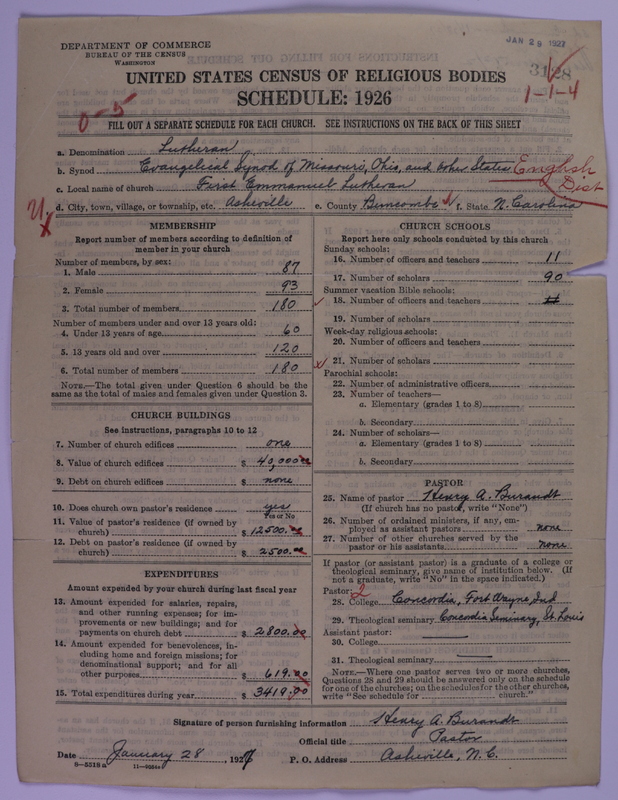 JAN 29 1927
DEPARTMENT OF COMMERCE
BUREAU OF THE CENSUS
WASHINGTON
UNITED STATES CENSUS OF RELIGIOUS BODIES
SCHEDULE: 1926
1-1-4
0-5
FILL OUT A SEPARATE SCHEDULE FOR EACH CHURCH. SEE INSTRUCTIONS ON THE BACK OF THIS SHEET
a. Denomination Lutheran
b. Synod Evangelical Synod of Missouri, Ohio, and other States English Dist
c. Local name of church First Emmanuel Lutheran
d. City, town, village, or township, etc. Asheville e. County Buncombe f. State N. Carolina
MEMBERSHIP
Report number of members according to definition of
member in your church
Number of members, by sex:
1. Male 87
2. Female 93
3. Total number of members 180
Number of members under and over 13 years old:
4. Under 13 years of age 60
5. 13 years old and over 120
6. Total number of members 180
NOTE.—The total given under Question 6 should be
same as the total of males and females given under Question 3.
CHURCH BUILDINGS
See instructions, paragraphs 10 to 12
7. Number of church edifices one
8. Value of church edifices $ 40,000.00
9. Debt on church edifices $ none
10. Does church own pastor's residence yes
Yes or No
11. Value of pastor's residence (if owned by
church) $ 12500.00
12. Debt on pastor's residence (if owned by
church) $ 2500.00
EXPENDITURES
Amount expended by your church during last fiscal year
13. Amount expended for salaries, repairs,
and other running expenses; for im-
provements or new buildings; and for
payments on church debt $ 2800.00
14. Amount expended for benevolences, in-
cluding home and foreign missions; for
denominational support; and for all
other purposes $ 619.00
15. Total expenditures during year $ 3419.00
CHURCH SCHOOLS
Report here only schools conducted by this church
Sunday schools:
16. Number of officers and teachers 11
17. Number of scholars 90
Summer vacation Bible schools:
18. Number of officers and teachers
19. Number of scholars
Week-day religious schools:
20. Number of officers and teachers
21. Number of scholars
Parochial schools:
22. Number of administrative officers
23. Number of teachers—
a. Elementary (grades 1 to 8)
b. Secondary
24. Number of scholars—
a. Elementary (grades 1 to 8)
b. Secondary
PASTOR
25. Name of pastor Henry A. Burandt
(If church has no pastor, write "None")
26. Number of ordained ministers, if any, em-
ployed as assistant pastors none
27. Number of other churches served by the
pastor or his assistants none
If pastor (or assistant pastor) is a graduate of a college or
theological seminary, give name of institution below. (If
not a graduate, write "No" in the space indicated.)
Pastor: 2
28. College Concordia, Fort Wayne, Ind
29. Theological seminary Concordia Seminary, St. Louis
Assistant pastor:
30. College
31. Theological seminary
NOTE.—Where one pastor serves two or more churches,
Questions 28 and 29 should be answered only on the schedule
for one of the churches; on the schedules for the other churches,
write "See schedule for church."
Signature of person furnishing information Henry A. Burandt
Official title Pastor
Date January 28, 1927 P. O. Address Asheville, N. C.